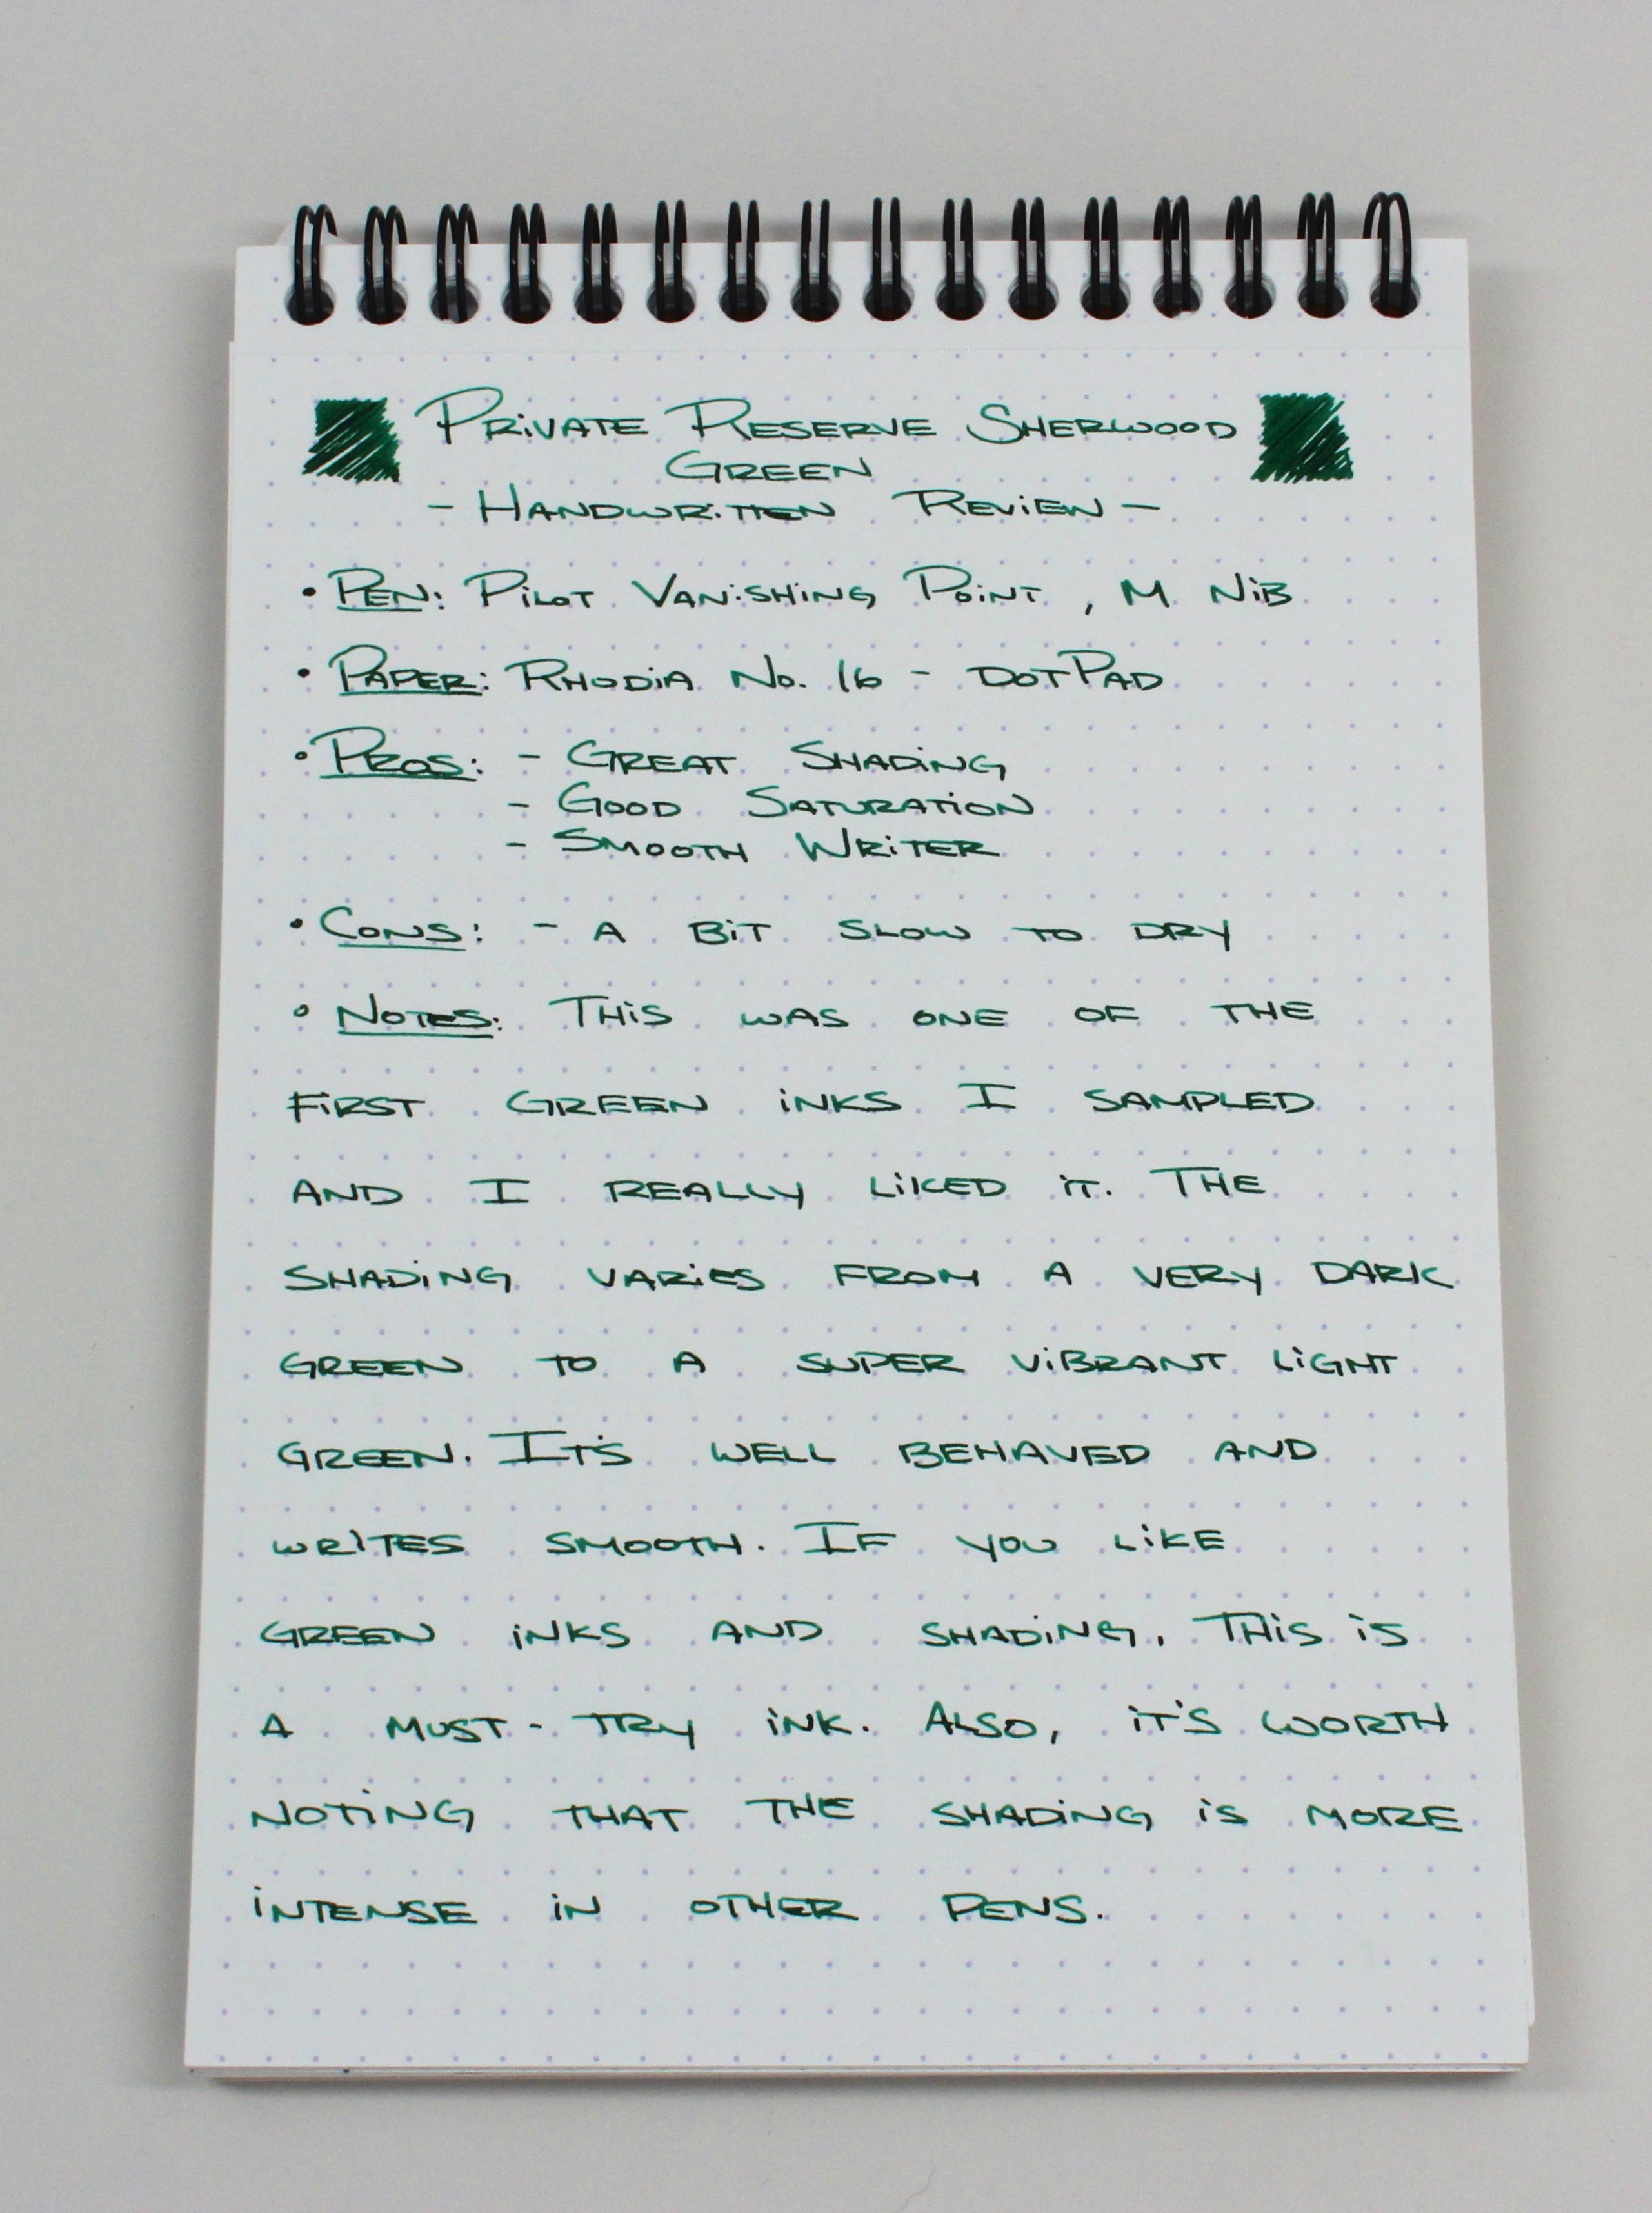 Private Reserve Sherwood
Green
- Handwritten Review -
• Pen: Pilot Vanishing Point, M Nib
• Paper: Rhodia No. 16 - DotPad
• Pros: - Great Shading
- Good Saturation
- Smooth Writer
• Cons: - A bit slow to dry
• Notes: This was one of the
first green inks I sampled
and I really liked it. The
shading varies from a very dark
green to a super vibrant light
green. It's well behaved and
writes smooth. If you like
green inks and shading, this is
a must-try ink. Also, it's worth
noting that the shading is more
intense in other pens.